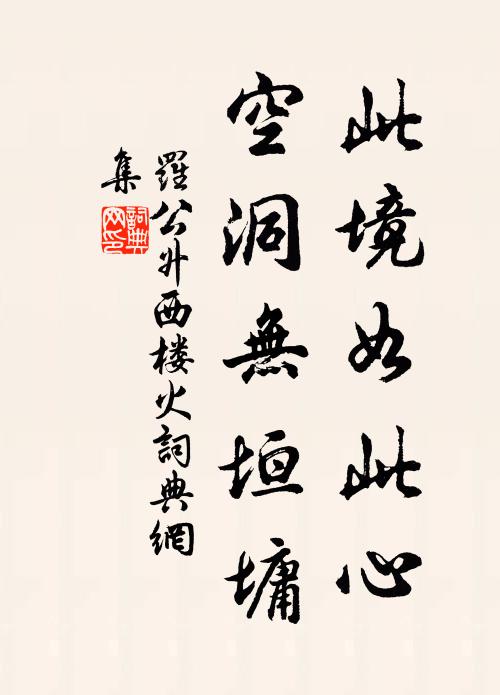 此境如此心
空洞無垣墉
羅公升西楼火詞典網
集
詞典
网印